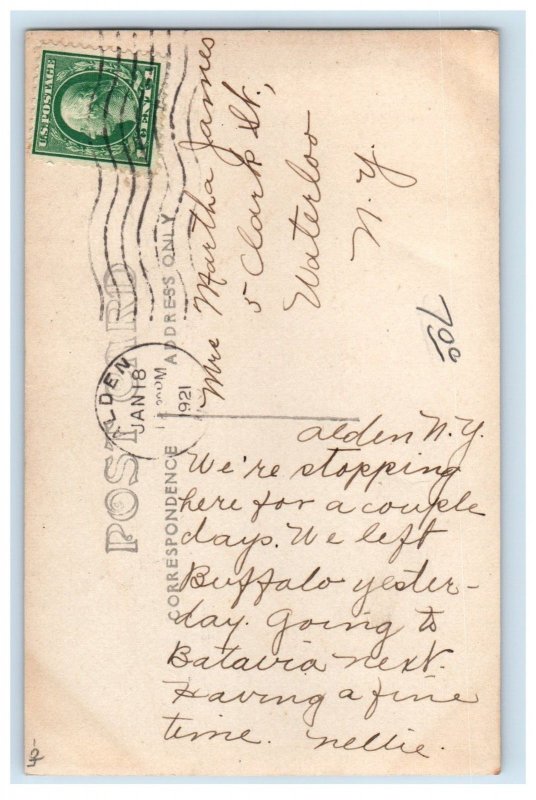 U.S. POSTAGE
CENTS
ALDEN
JAN 18
1921
POST CARD
ADDRESS ONLY
CORRESPONDENCE
Mrs Martha James
5 Clark St.,
Waterloo
N.Y.
Alden N.Y.
We're stopping
here for a couple
days. We left
Buffalo yester-
day. Going to
Batavia next.
Having a fine
time. Nellie.